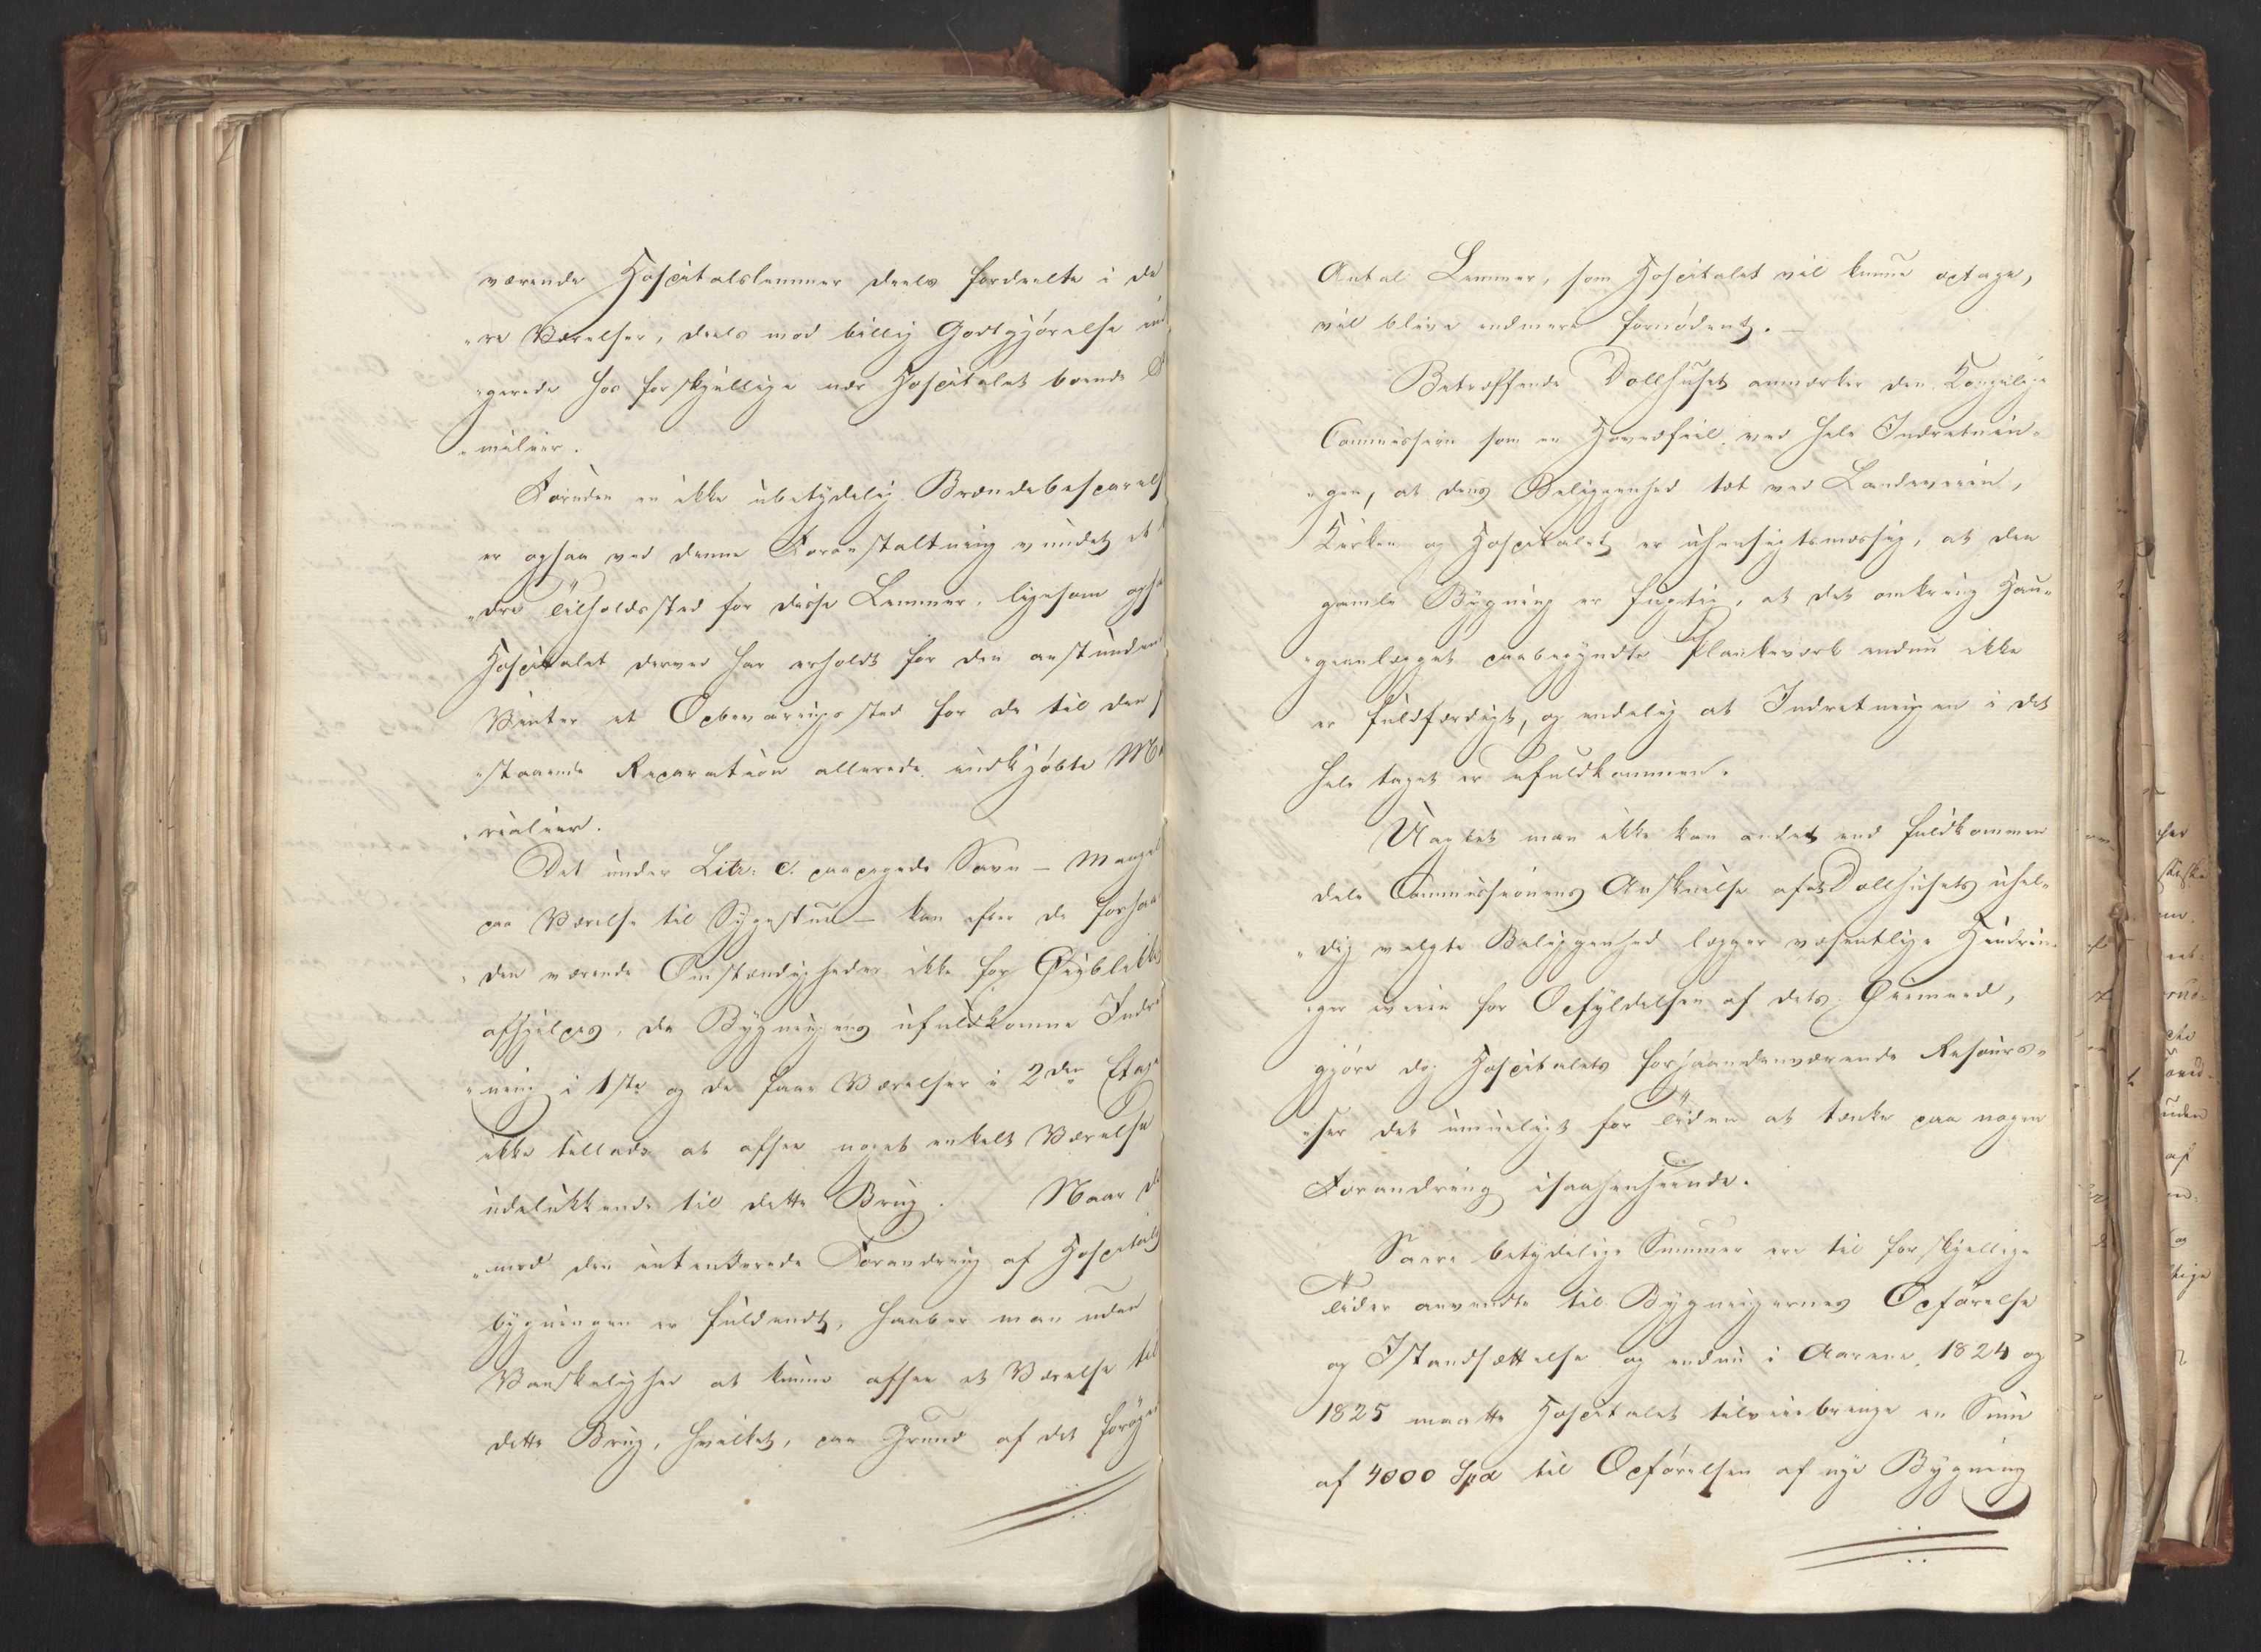 værende Hospitalslemmer deels fordeelte i de
„re Værelser, deels mod billig Godtgjörelse ind
„gerede hos forskjellige nær Hospitalet boende
„milier.
Foruden en ikke ubetydelig Brændebesparels
er ogsaa ved denne Foranstaltning vundet et
„dre Tilholdssted for disse Lemmer, ligesom ogsa
Hospitalet derved har erholdt for den anstunden
Vinter et Opbevaringssted for de til den
„staaende Reparation allerede indkjöbte Ma
„rialier.
Det under Litr. c. paapegede Savn – Mangel
paa Værelse til Sygestue – kan efter de forhaan
„den værende Omstændigheder ikke for Öieblikket
afhjelpes, da Bygningens ufuldkomne Indr
„ning i 1ste og de faae Værelser i 2den Etage
ikke tillade at afsee noget enkelt Værelse
udelukkende til dette Brug. Naar d
„mod den intenderede Forandring af Hospitals
bygningen er fuldendt, haaber man uden
Vanskelighed at kunne afsee et Værelse til
dette Brug, hvilket, paa Grund af det foröge
Antal Lemmer, som Hospitalet vil kunne optage,
vil blive endmere fornödent. –
Betræffende Dollhuset anmærker den Kongelige
Commission som en Hovedfeil ved hele Indretnin„
„gen, at dens Beliggenhed tæt ved Landeveien,
Kirken og Hospitalet er uhensigtsmæssig, at den
gamle Bygning er fugtig, at det omkring Hau„
„geanlægget paabegyndte Plankeværk endnu ikke
er fuldfærdigt, og endelig at Indretningen i det
hele taget er ufuldkommen.
Uagtet man ikke kan andet end fuldkommen
dele Commissionens Anskuelse af at Dollhusets uhel„
„dig valgte Beliggenhed lægger væsentlige Hindrin„
„ger iveien for Opfyldelsen af dets Öiemeed,
gjöre dog Hospitalets forhaandenværende Resours„
„ser det umueligt for Tiden at tænke paa nogen
Forandring isaahenseende.
Saare betydelige Summer ere til forskjellige
Tider anvendte til Bygningernes Opförelse
og Istandsættelse og endnu i Aarene 1824 og
1825 maatte Hospitalet tilveiebringe en Sum
af 4000 Spd til Opförelsen af nye Bygning